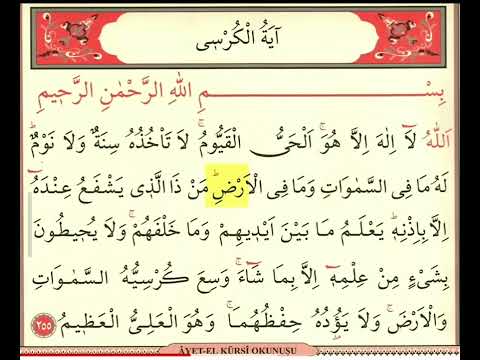 اٰيَةُ الْكُرْسٖى
بِسْمِ اللّٰهِ الرَّحْمٰنِ الرَّحٖيمِ
اَللّٰهُ لَٓا اِلٰهَ اِلَّا هُوَۚ اَلْحَىُّ الْقَيُّومُۚ لَا تَأْخُذُهُ سِنَةٌ وَلَا نَوْمٌؕ
لَهُ مَا فِى السَّمٰوَاتِ وَمَا فِى الْاَرْضِؕ مَنْ ذَا الَّذٖى يَشْفَعُ عِنْدَهُٓ
اِلَّا بِاِذْنِهٖؕ يَعْلَمُ مَا بَيْنَ اَيْدٖيهِمْ وَمَا خَلْفَهُمْۚ وَلَا يُحٖيطُونَ
بِشَىْءٍ مِنْ عِلْمِهٖٓ اِلَّا بِمَا شَٓاءَۚ وَسِعَ كُرْسِيُّهُ السَّمٰوَاتِ
وَالْاَرْضَۚ وَلَا يَؤُ۫دُهُ حِفْظُهُمَاۚ وَهُوَ الْعَلِىُّ الْعَظٖيمُ ٢٥٥
ÂYET-EL KÜRSÎ OKUNUŞU